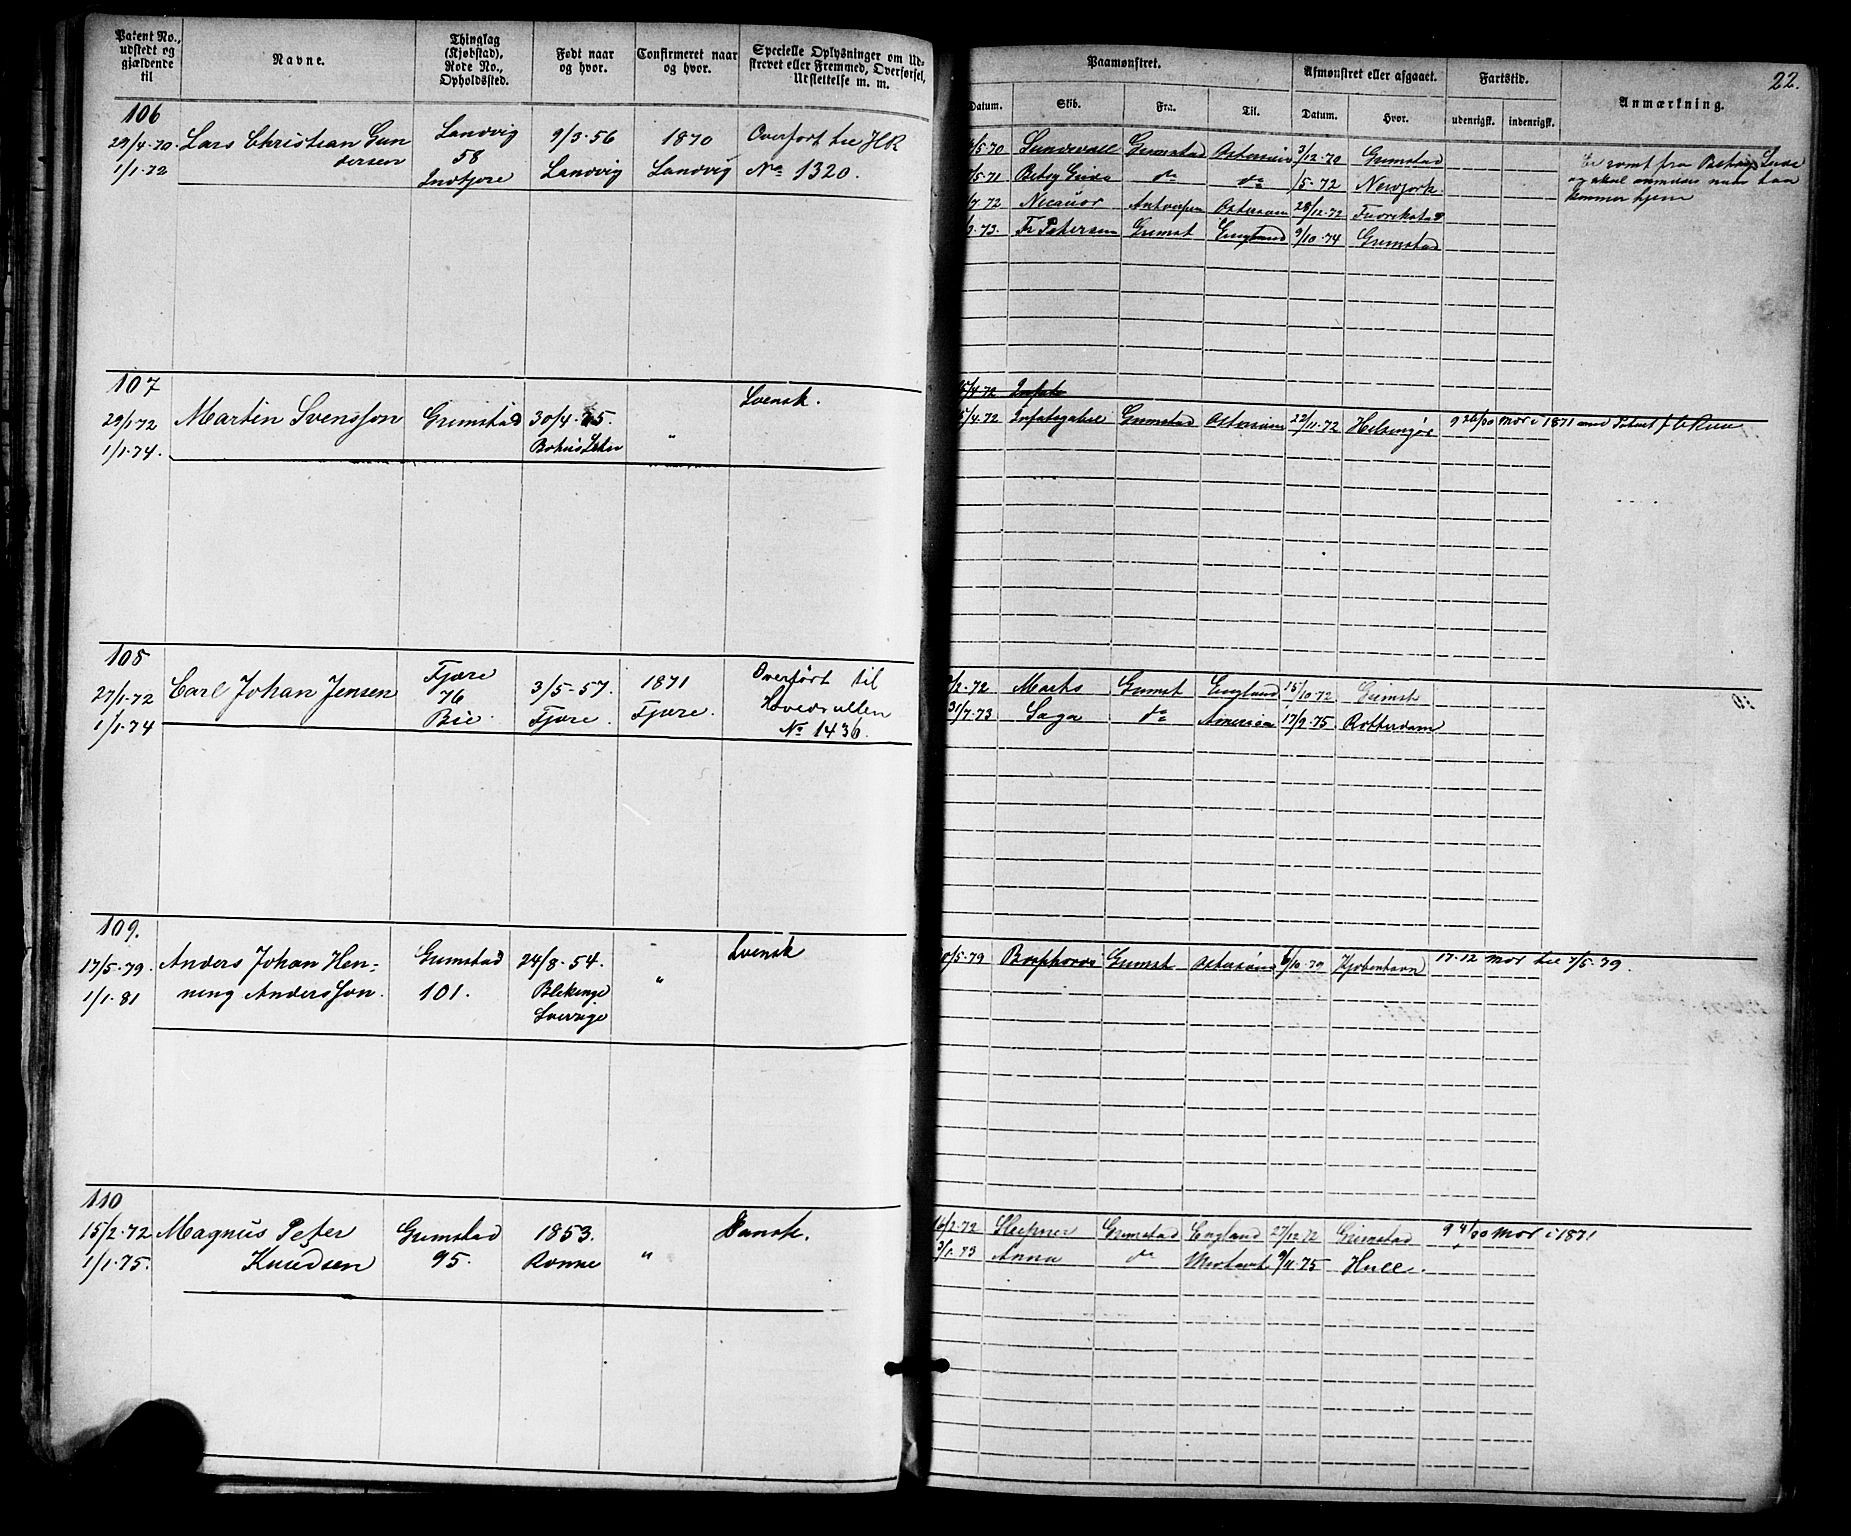 Patent No., udstedt og gjældende til
Navne.
Thinglag (Kjøbstad), Rode No., Opholdssted.
Født naar og hvor.
Confirmeret naar og hvor.
Specielle Oplysninger om Udskrevet eller Fremmed, Overførsel, Udslettelse m. m.
Paamønstret.
Datum.
Skib.
Fra.
Til.
Afmønstret eller afgaaet.
Datum.
Hvor.
Fartstid.
udenrigsk.
indenrigsk.
Anmærkning.
22.
106
29/4-70. Lars Christian Gun Landvig 9/3-56 1870 Overført til HR
1/1-72 dersen 58 Landvig Landvig No 1320.
5-70 Grimstad Østersøen 3/12-70 Grimstad
5-71 Betsy do do /5-72 Newyork
72 Antverpen 28/12-72
73. Fr Petersen Grimst England 9/10-74 Grimstad
kommer hjem
107
29/1-72 Martin Svensson Grimstad 30/4- 5. " Svensk.
1/1-74.
15/4-72
15/4-72 Grimstad Østersøen 22/11-72 Helsingør 9 26/30 Mdr i 1871 med Patent
108
27/1-72 Carl Johan Jensen Fjære 3/5-57. 1871 Overført til
1/1-74 76 Fjære. Fjære. Hovedrullen
Bie. No 1436.
/2-72 Grimst England 15/10-72 Grimst
31/7-73 Saga do America 17/9-75 Rotterdam
109.
17/5-79. Anders Johan Hen- Grimstad 24/8-54. " Svensk
1/1-81 ning Andersson. 101. Blekinge
Sverige
/5-79 Grimst Østersøen 6/10-79 Kjøbenhavn 17-12 Mdr til 7/5-79.
110
15/2-72 Magnus Peter Grimstad 1853. " Dansk.
1/1-75. Knudsen 95. Rønne
16/2-72 Sleipner Grimstad England 27/12-72 Grimstad 9 4/30 Mdr i 1871
3/1-73 Anna do 9/11-75 Hull.